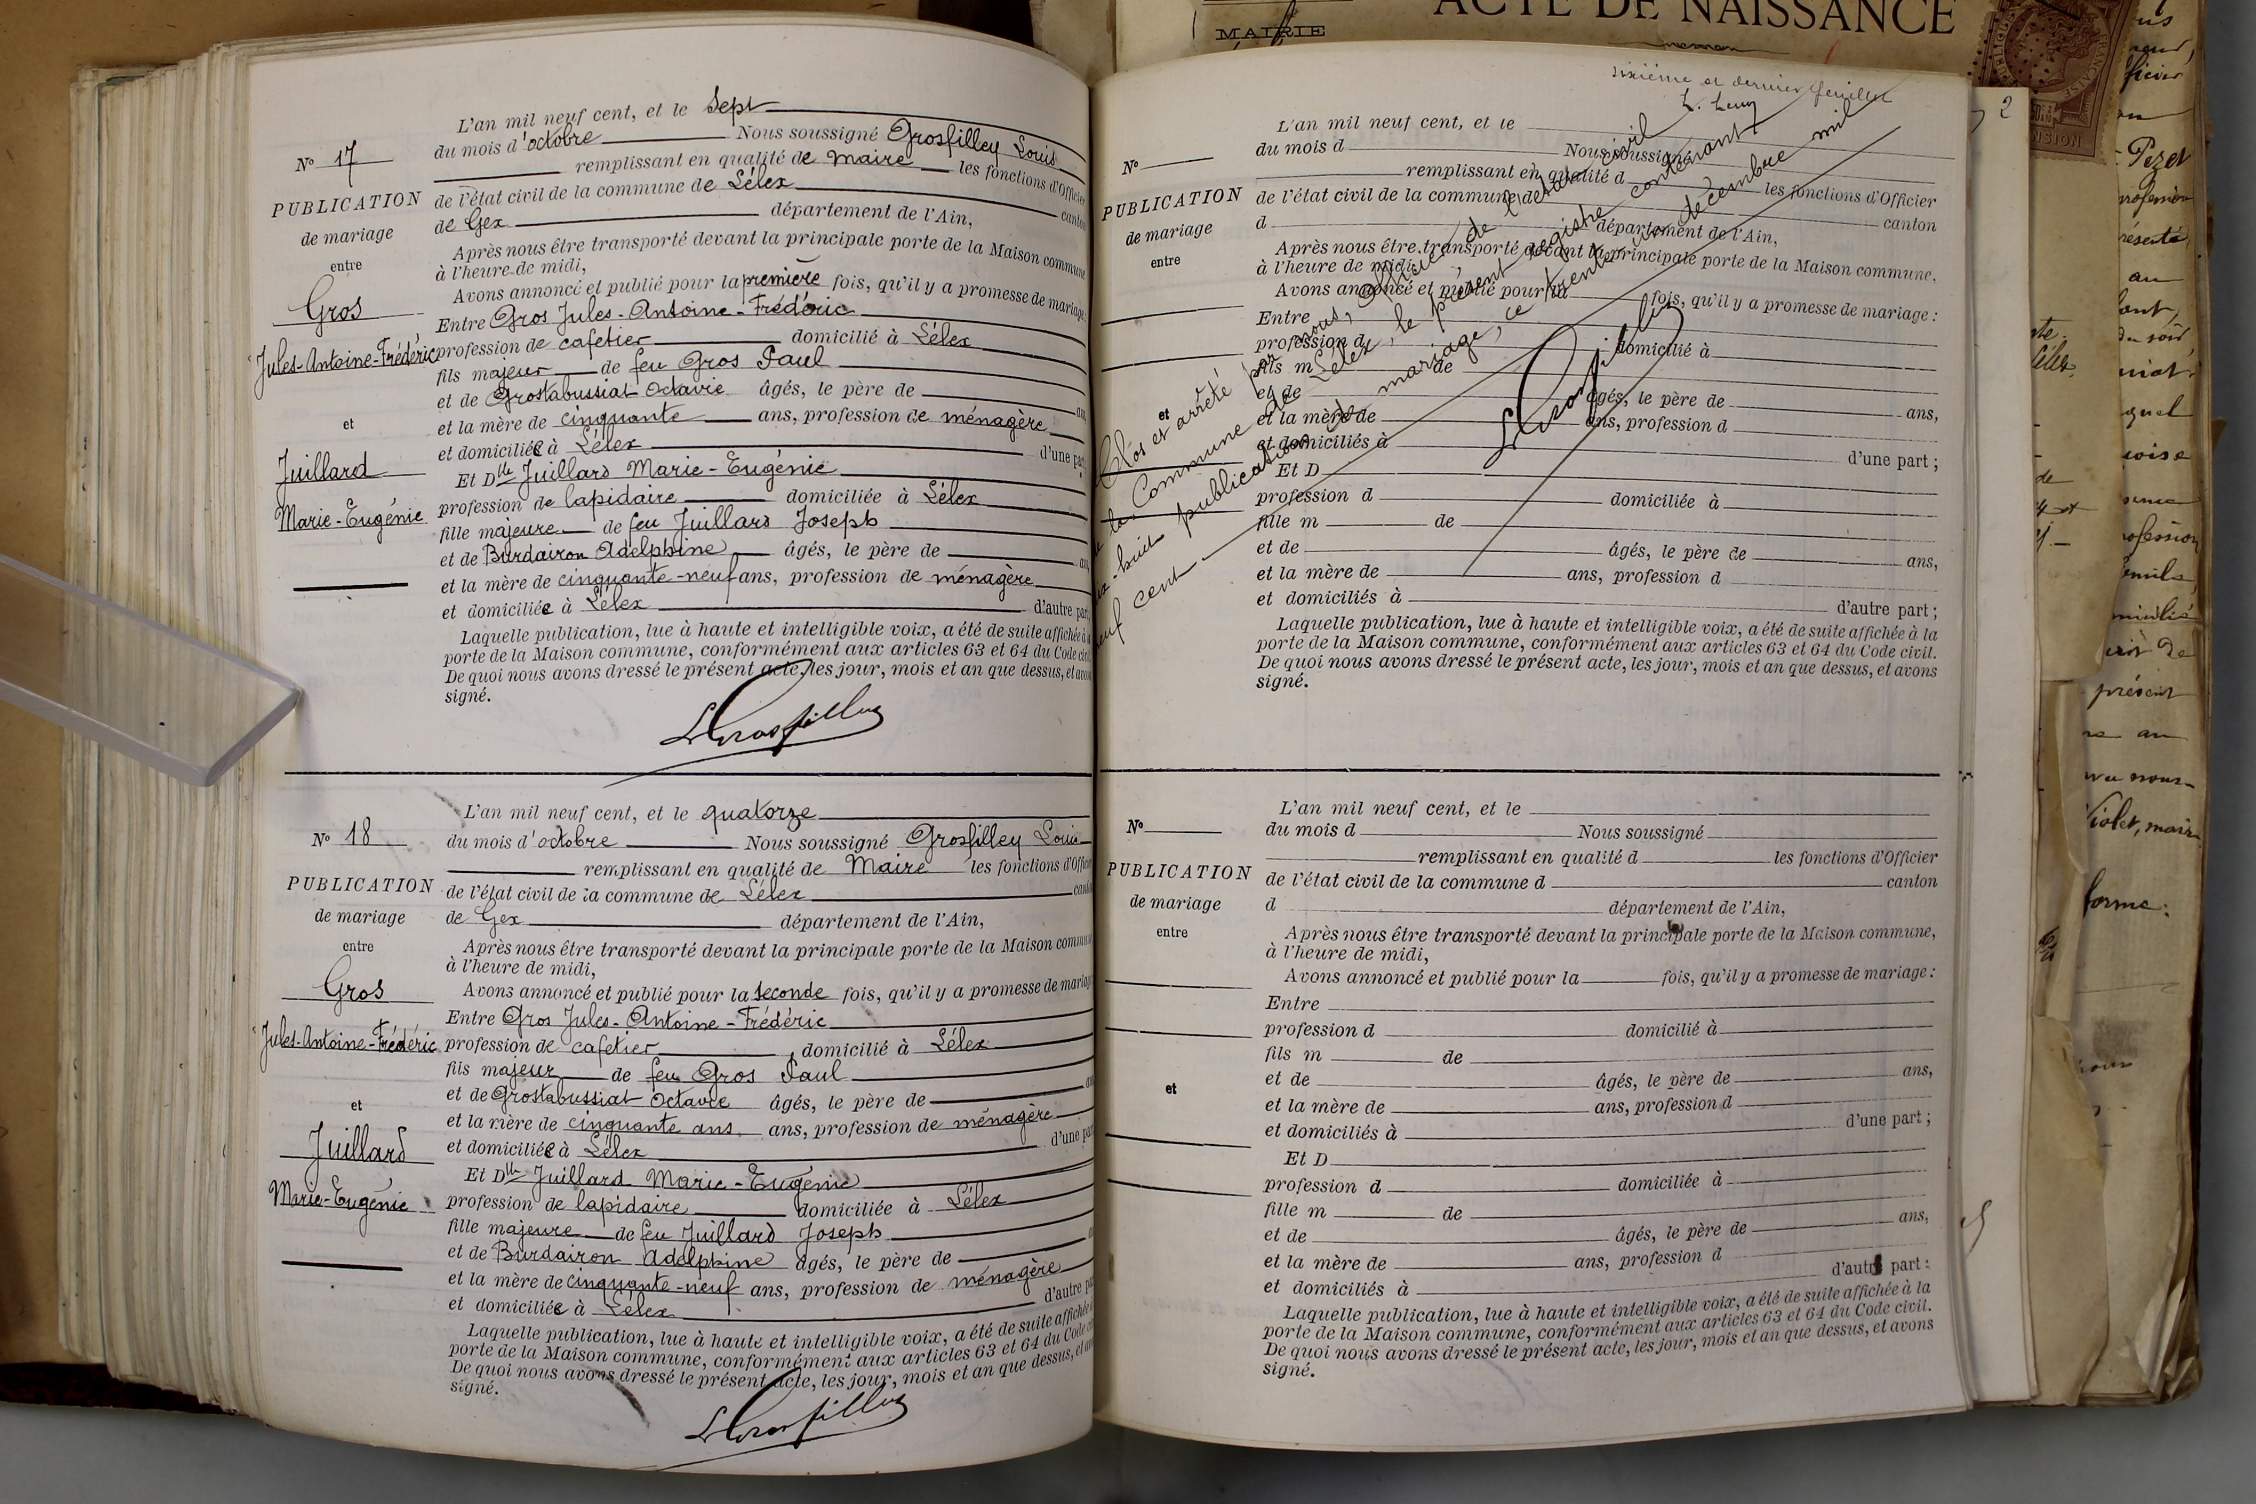 L'an mil neuf cent, et le sept
du mois d'octobre Nous soussigné Grosfilley Louis
remplissant en qualité de maire les fonctions d'Officier
de l'état civil de la commune de Lélex canton
de Gex département de l'Ain,
Après nous être transporté devant la principale porte de la Maison commune
à l'heure de midi,
Avons annoncé et publié pour la première fois, qu'il y a promesse de mariage:
Entre Gros Jules-Antoine-Frédéric
profession de cafetier domicilié à Lélex
fils majeur de feu Gros Paul
et de Grostabussiat Octavie âgés, le père de an
et la mère de cinquante ans, profession de ménagère
et domiciliée à Lélex d'une part
Et Dlle Juillard Marie-Eugénie
profession de lapidaire domiciliée à Lélex
fille majeure de feu Juillard Joseph
et de Burdairon Adelphine âgés, le père de an
et la mère de cinquante-neuf ans, profession de ménagère
et domiciliée à Lélex d'autre part
Laquelle publication, lue à haute et intelligible voix, a été de suite affichée à
porte de la Maison commune, conformément aux articles 63 et 64 du Code civil
De quoi nous avons dressé le présent acte, les jour, mois et an que dessus, et avons
signé.
LGrosfilley
No 17
PUBLICATION
de mariage
entre
Gros
Jules-Antoine-Frédéric
et
Juillard
Marie-Eugénie
L'an mil neuf cent, et le quatorze
du mois d'octobre Nous soussigné Grosfilley Louis
remplissant en qualité de Maire les fonctions d'Officier
de l'état civil de la commune de Lélex canton
de Gex département de l'Ain,
Après nous être transporté devant la principale porte de la Maison commune
à l'heure de midi,
Avons annoncé et publié pour la seconde fois, qu'il y a promesse de mariage
Entre Gros Jules-Antoine-Frédéric
profession de cafetier domicilié à Lélex
fils majeur de feu Gros Paul
et de Grostabussiat Octavie âgés, le père de an
et la mère de cinquante ans ans, profession de ménagère
et domiciliée à Lélex d'une part
Et Dlle Juillard Marie-Eugénie
profession de lapidaire domiciliée à Lélex
fille majeure de feu Juillard Joseph
et de Burdairon Adelphine âgés, le père de
et la mère de cinquante-neuf ans, profession de ménagère
et domiciliée à Lélex d'autre part
Laquelle publication, lue à haute et intelligible voix, a été de suite affichée
porte de la Maison commune, conformément aux articles 63 et 64 du Code
De quoi nous avons dressé le présent acte, les jour, mois et an que dessus, et
signé.
LGrosfilley
No 18
PUBLICATION
de mariage
entre
Gros
Jules-Antoine-Frédéric
et
Juillard
Marie-Eugénie
MAIRIE
ACTE DE NAISSANCE
sixième et dernier feuillet
Clos et arrêté par nous, officier de l'état civil
de la Commune de Lélex, le présent registre contenant
dix-huit publications de mariage, ce trente un décembre mil
neuf cent
LGrosfilley
L'an mil neuf cent, et le
du mois d Nous soussigné
remplissant en qualité d les fonctions d'Officier
de l'état civil de la commune d canton
d département de l'Ain,
Après nous être transporté devant la principale porte de la Maison commune,
à l'heure de midi,
Avons annoncé et publié pour la fois, qu'il y a promesse de mariage :
Entre
profession d domicilié à
fils m de
et de âgés, le père de ans,
et la mère de ans, profession d
et domiciliés à d'une part ;
Et D
profession d domiciliée à
fille m de
et de âgés, le père de ans,
et la mère de ans, profession d
et domiciliés à d'autre part ;
Laquelle publication, lue à haute et intelligible voix, a été de suite affichée à la
porte de la Maison commune, conformément aux articles 63 et 64 du Code civil.
De quoi nous avons dressé le présent acte, les jour, mois et an que dessus, et avons
signé.
No
PUBLICATION
de mariage
entre
et
L'an mil neuf cent, et le
du mois d Nous soussigné
remplissant en qualité d les fonctions d'Officier
de l'état civil de la commune d canton
d département de l'Ain,
Après nous être transporté devant la principale porte de la Maison commune,
à l'heure de midi,
Avons annoncé et publié pour la fois, qu'il y a promesse de mariage :
Entre
profession d domicilié à
fils m de
et de âgés, le père de ans,
et la mère de ans, profession d
et domiciliés à d'une part ;
Et D
profession d domiciliée à
fille m de
et de âgés, le père de ans,
et la mère de ans, profession d
et domiciliés à d'autre part :
Laquelle publication, lue à haute et intelligible voix, a été de suite affichée à la
porte de la Maison commune, conformément aux articles 63 et 64 du Code civil.
De quoi nous avons dressé le présent acte, les jour, mois et an que dessus, et avons
signé.
No
PUBLICATION
de mariage
entre
et
2
Pezet
profession
au
du soir
présent
Violet, maire
forme: